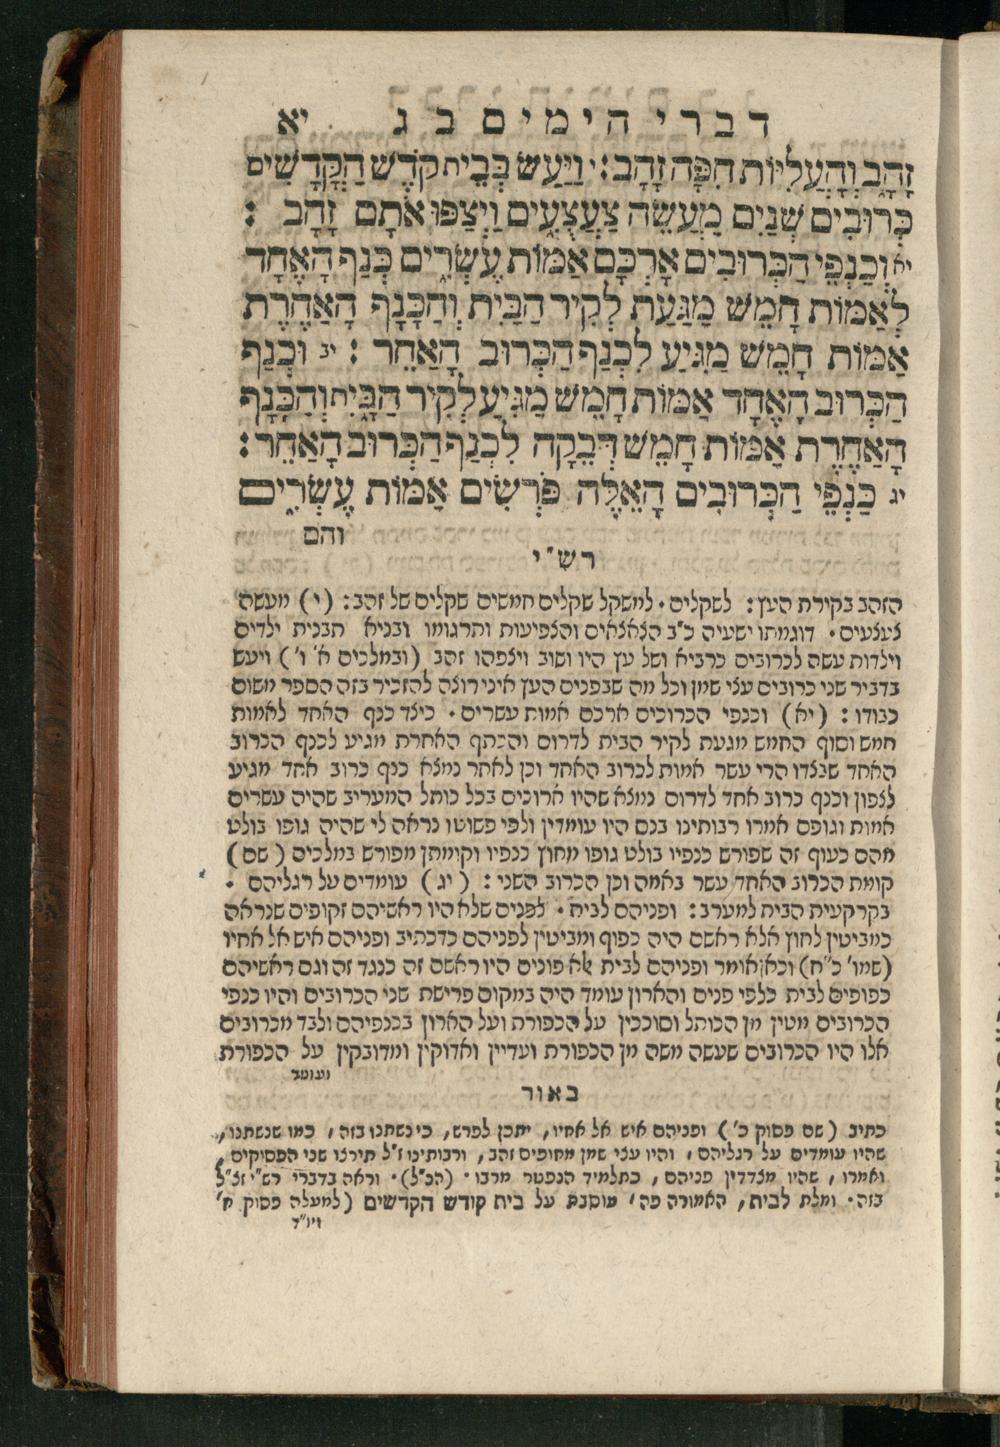 דברי הימים ב ג יא
זָהָב וְהָעֲלִיּוֹת חִפָּה זָהָב: י וַיַּעַשׂ בְּבֵית קֹדֶשׁ הַקֳּדָשִׁים
כְּרוּבִים שְׁנַיִם מַעֲשֵׂה צַעֲצֻעִים וַיְצַפּוּ אֹתָם זָהָב :
יא וְכַנְפֵי הַכְּרוּבִים אָרְכָּם אַמּוֹת עֶשְׂרִים כְּנַף הָאֶחָד
לְאַמּוֹת חָמֵשׁ מַגַּעַת לְקִיר הַבַּיִת וְהַכָּנָף הָאַחֶרֶת
אַמּוֹת חָמֵשׁ מַגִּיעַ לִכְנַף הַכְּרוּב הָאַחֵר : יב וּכְנַף
הַכְּרוּב הָאֶחָד אַמּוֹת חָמֵשׁ מַגִּיעַ לְקִיר הַבָּיִת וְהַכָּנָף
הָאַחֶרֶת אַמּוֹת חָמֵשׁ דְּבֵקָה לִכְנַף הַכְּרוּב הָאַחֵר:
יג כַּנְפֵי הַכְּרוּבִים הָאֵלֶּה פֹּרְשִׂים אַמּוֹת עֶשְׂרִים
והם
רש״י
הזהב בקירת העץ: לשקלים · למשקל שקלים חמשים שקלים של זהב: (י) מעשה
צעצעים · דוגמתו ישעיה כ״ב הצאצאים והצפיעות ותרגומו ובניא תבנית ילדים
וילדות עשה לכרובים כרביא ושל עץ היו ושוב ויצפהו זהב (ובמלכים א׳ ו׳) ויעש
בדביר שני כרובים עצי שמן וכל מה שבפנים העץ איני רוצה להזכיר בזה הספר משום
כבודו : (יא) וכנפי הכרובים ארכם אמות עשרים · כיצד כנף האחד לאמות
חמש וסוף החמש מגעת לקיר הבית לדרום והכתף האחרת מגיע לכנף הכרוב
האחד שבצדו הרי עשר אמות לכרוב האחד וכן לאחר נמצא כנף כרוב אחד מגיע
לצפון וכנף כרוב אחד לדרום נמצא שהיו ארוכים בכל כותל המערבי שהיה עשרים
אמות וגופם אמרו רבותינו בנם היו עומדין ולפי פשוטו נראה לי שהיה גופו בולט
מהם כעוף זה שפורש כנפיו בולט גופו מחוץ כנפיו וקומתן מפורש במלכים (שם)
קומת הכרוב האחד עשר באמה וכן הכרוב השני : (יג) עומדים על רגליהם ·
בקרקעית הבית למערב: ופניהם לבית · לפנים שלא היו ראשיהם זקופים שנראה
כמביטין לחוץ אלא ראשם היה כפוף ומביטין לפניהם כדכתיב ופניהם איש אל אחיו
(שמו׳ כ״ח) וכאן אומר ופניהם לבית לא פונים היו ראשם זה כנגד זה וגם ראשיהם
כפופים לבית כלפי פנים והארון עומד היה במקום פרישת שני הכרובים והיו כנפי
הכרובים מטין מן הכותל וסוככין על הכפורת ועל הארון בכנפיהם ולבד מכרובים
אלו היו הכרובים שעשה משה מן הכפורת ועדיין ואדוקין ומדובקין על הכפורת
באור
כתיב (שם פסוק כ׳) ופניהם איש אל אחיו, יתכן לפרש, כי נשתנו בזה, כמו שנשתנו,
שהיו עומדים על רגליהם, והיו עצי שמן מחופים זהב, ורבותינו ז״ל תירצו שני הפסוקים,
ואמרו, שהיו מצדדין פניהם, כתלמיד הנפטר מרבו · (הכ״ל) · וראה בדברי רש״י זצ״ל
בזה · ומלת לבית, האמורה פה, מוסבת על בית קודש הקדשים (למעלה פסוק ח׳